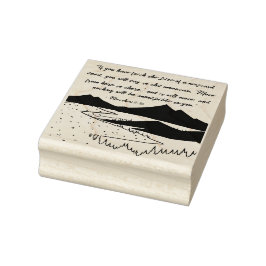 "If you have faith the size of a mustard
seed, you will say to this mountain, 'Move
from here to there,' and it will move; and
nothing will be impossible to you.